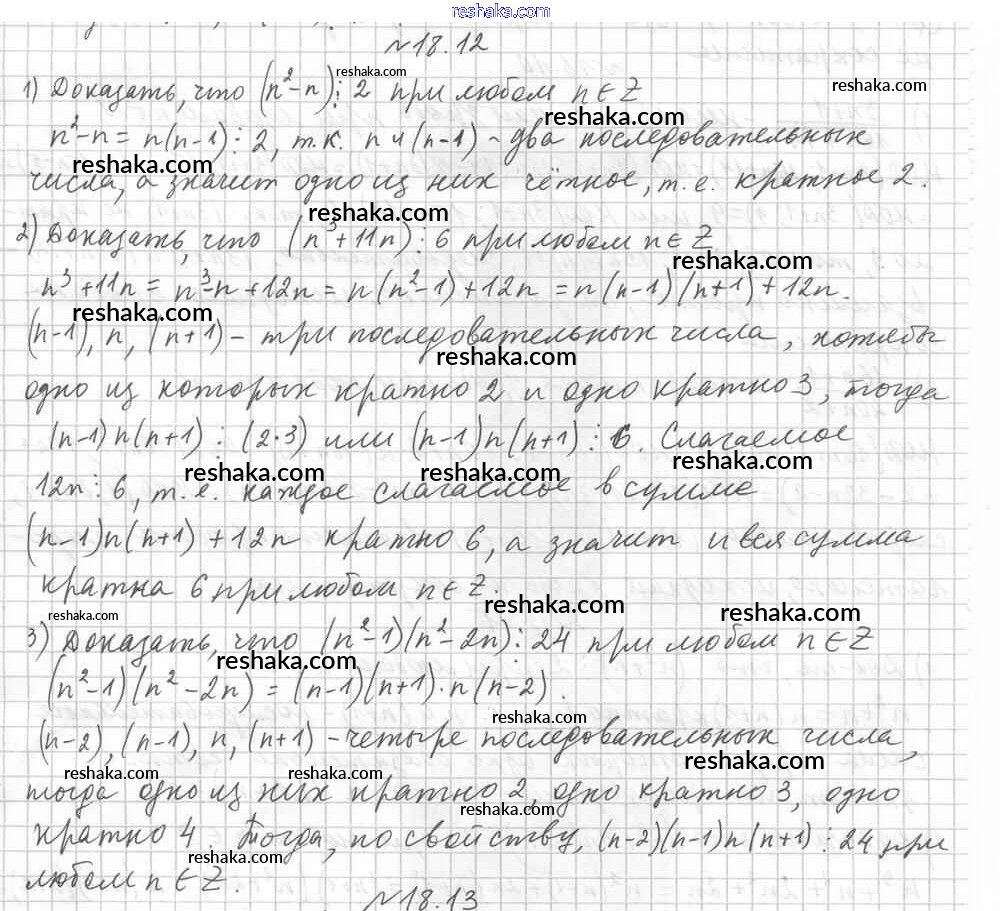 reshaka.com
№18.12
reshaka.com
reshaka.com
1) Доказать, что (n²-n)⋮2 при любом n∈Z
reshaka.com
n²-n = n(n-1)⋮2, т.к. n и (n-1) - два последовательных
reshaka.com
числа, а значит одно из них чётное, т.е. кратное 2.
reshaka.com
2) Доказать, что (n³+11n)⋮6 при любом n∈Z
reshaka.com
n³+11n = n³-n+12n = n(n²-1)+12n = n(n-1)(n+1)+12n.
reshaka.com
(n-1), n, (n+1) - три последовательных числа, хотябы
reshaka.com
одно из которых кратно 2 и одно кратно 3, тогда
(n-1)n(n+1)⋮(2·3) или (n-1)n(n+1)⋮6. Слагаемое
reshaka.com reshaka.com reshaka.com
12n⋮6, т.е. каждое слагаемое в сумме
(n-1)n(n+1)+12n кратно 6, а значит и вся сумма
кратна 6 при любом n∈Z.
reshaka.com reshaka.com reshaka.com
3) Доказать, что (n²-1)(n²-2n)⋮24 при любом n∈Z
reshaka.com
(n²-1)(n²-2n) = (n-1)(n+1)·n(n-2).
reshaka.com
(n-2), (n-1), n, (n+1) - четыре последовательных числа,
reshaka.com reshaka.com reshaka.com
тогда одно из них кратно 2, одно кратно 3, одно
reshaka.com
кратно 4. Тогда, по свойству, (n-2)(n-1)n(n+1)⋮24 при
reshaka.com
любом n∈Z.
reshaka.com
№18.13